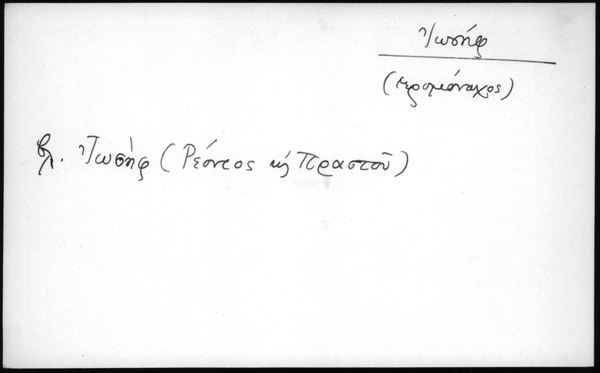 Ἰωσήφ
(ἱερομόναχος)
βλ. Ἰωσήφ (Ρέοντος κ̀ Πραστοῦ)